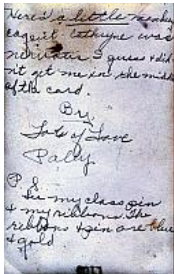 Here's a little monkey
Cathryne was
nervious I guess & did
n't get me in the midd
of the card.
By.
Lots of Love
Polly.
P.S.
See my class pin
& my ribbons. The
ribbons & pin are blue
& gold